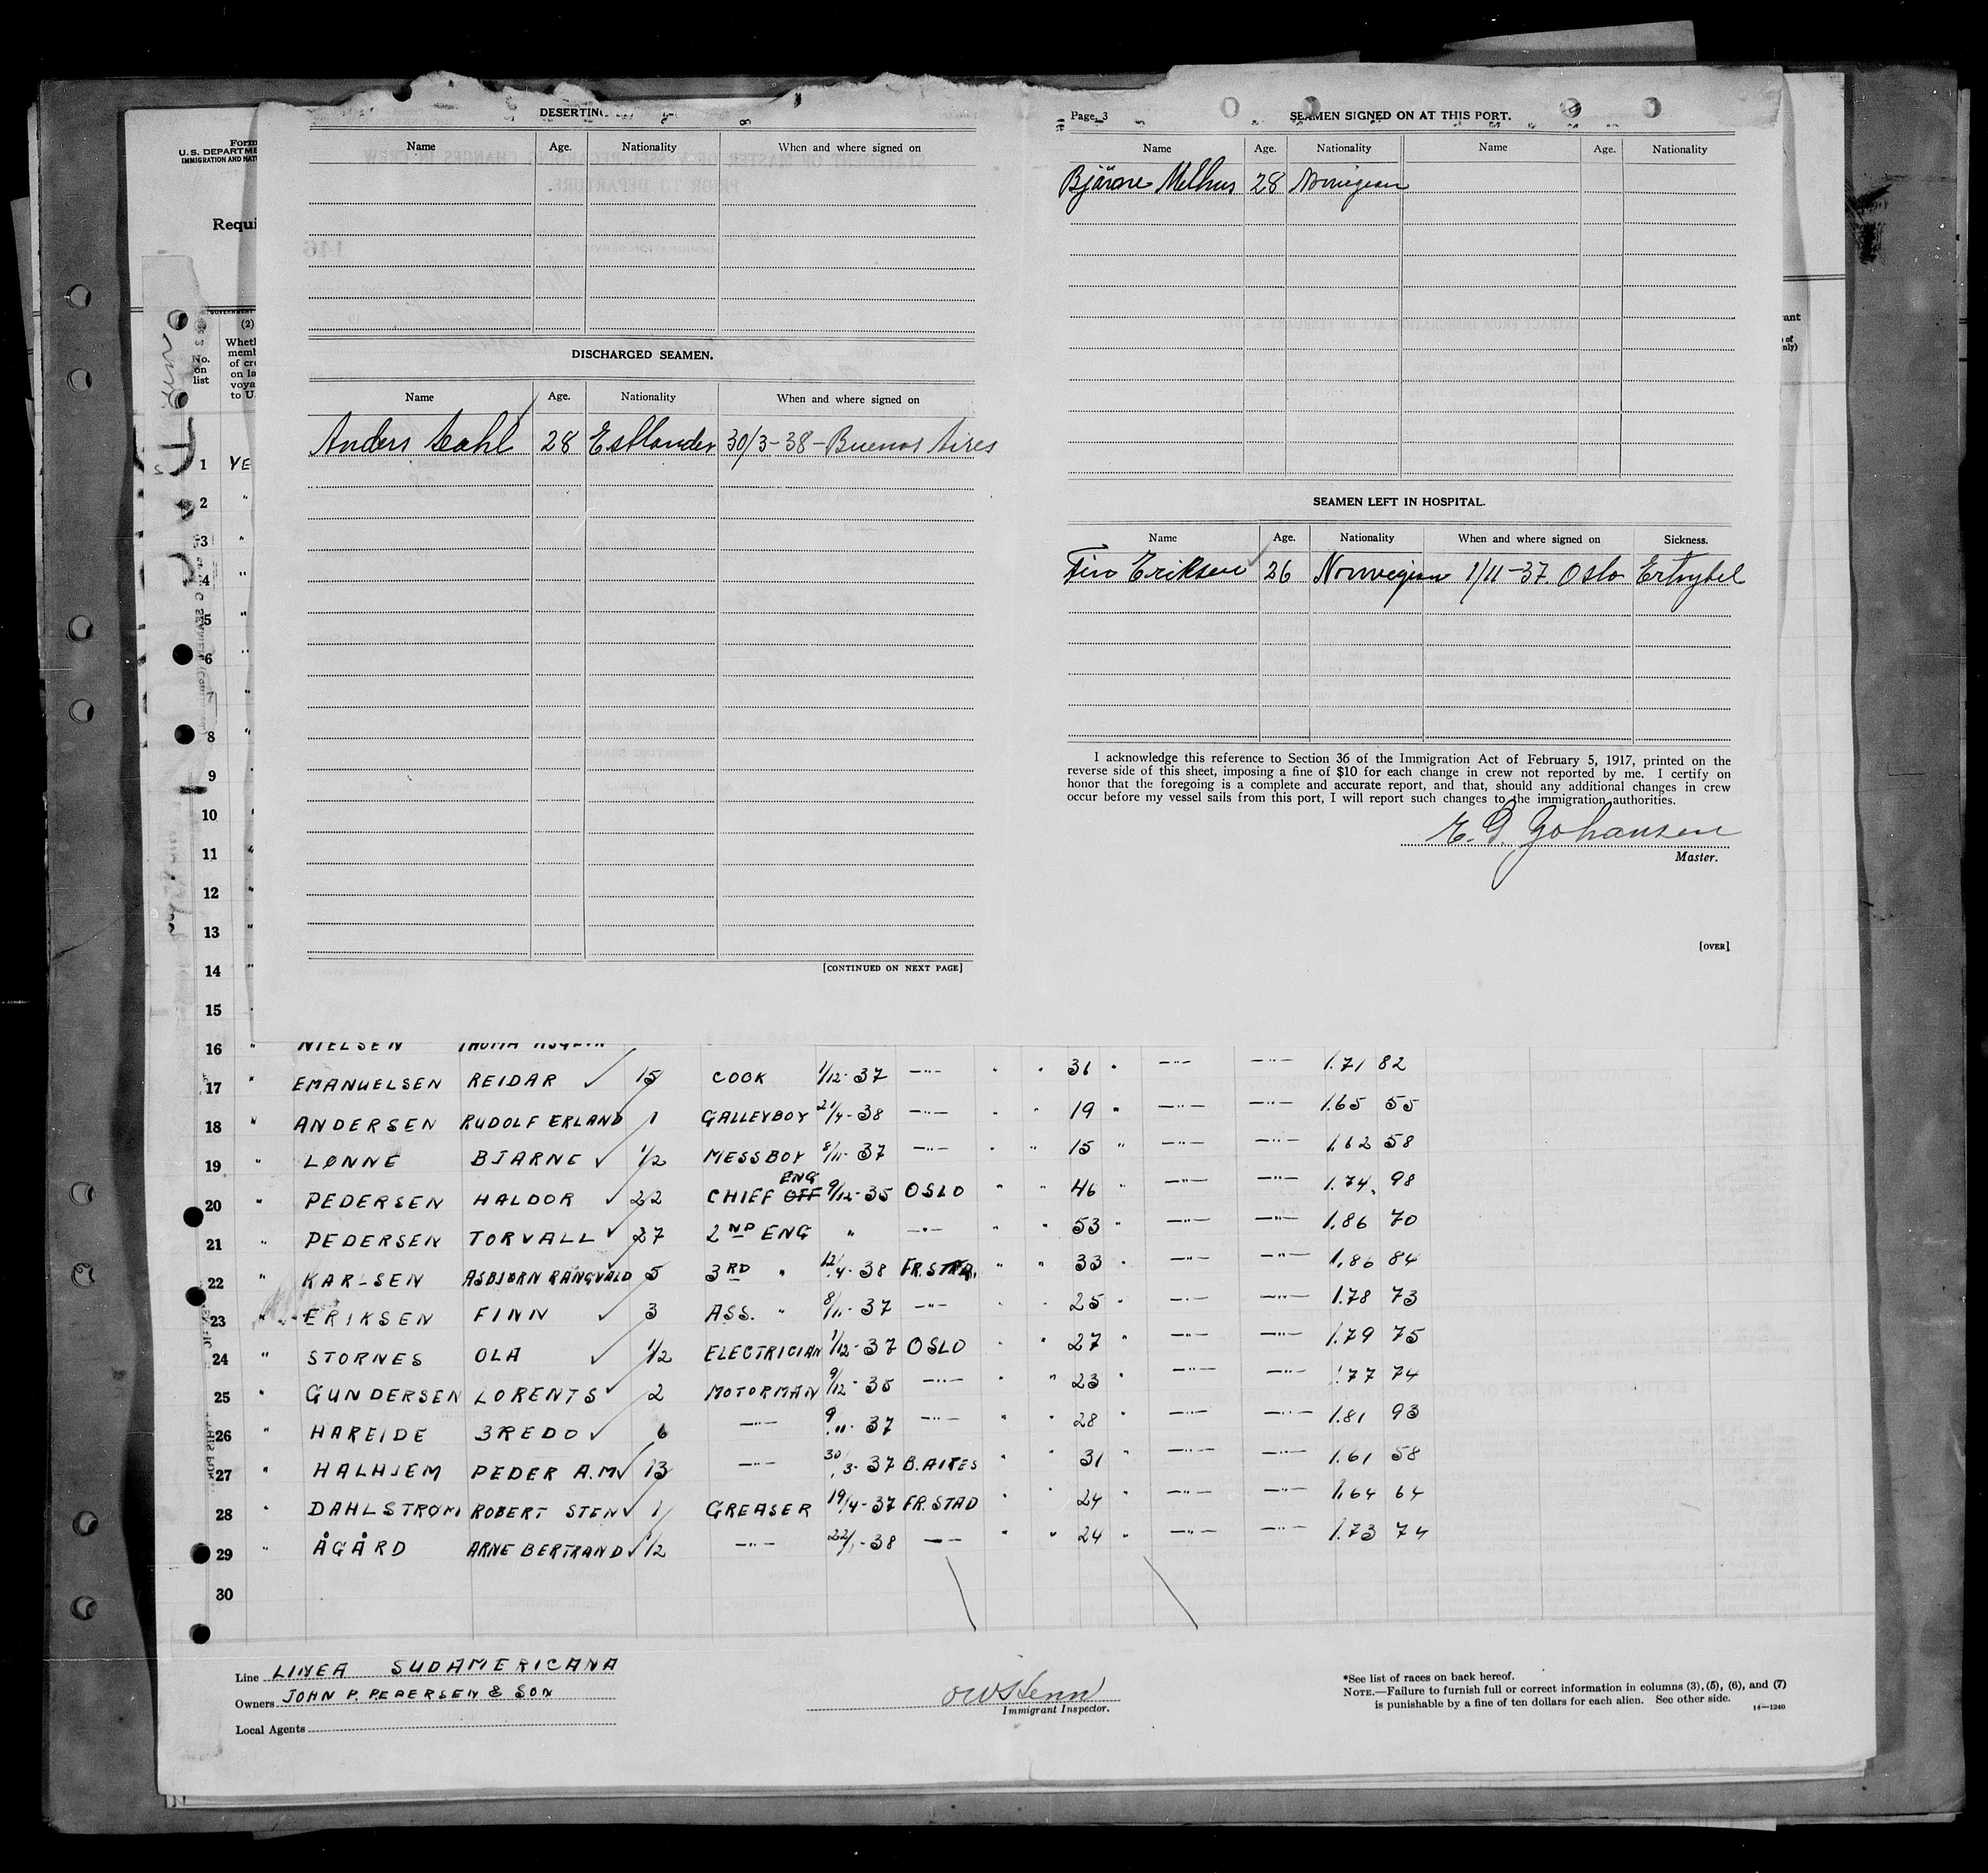 DESERTING
Name Age. Nationality When and where signed on
DISCHARGED SEAMEN.
Name Age. Nationality When and where signed on
Anders 28 Estlander 30/3-38-Buenos Aires
[CONTINUED ON NEXT PAGE]
Page 3
SEAMEN SIGNED ON AT THIS PORT.
Name Age. Nationality Name Age. Nationality
Bjärne Melhus 28 Norwegian
SEAMEN LEFT IN HOSPITAL.
Name Age. Nationality When and where signed on Sickness.
Finn Eriksen 26 Norwegian 1/11-37. Oslo
I acknowledge this reference to Section 36 of the Immigration Act of February 5, 1917, printed on the
reverse side of this sheet, imposing a fine of $10 for each change in crew not reported by me. I certify on
honor that the foregoing is a complete and accurate report, and that, should any additional changes in crew
occur before my vessel sails from this port, I will report such changes to the immigration authorities.
E. G. Johansen
Master.
[OVER]
Form
U.S. DEPARTME
IMMIGRATION AND NAT
Requi
(2)
No.
on
list
Wheth
memb
of cre
on la
voya
to U.
1 YE
2 "
3 "
4 "
5 "
6 "
7 "
8 "
9
10
11
12
13 "
14 "
15
16 " NIELSEN
17 " EMANUELSEN REIDAR ✓ 15 COOK 1/12-37 —"— " " 31 " —"— —"— 1.71 82
18 " ANDERSEN RUDOLF ERLAND 1 GALLEYBOY 21/4-38 —"— " " 19 " —"— —"— 1.65 55
19 " LØNNE BJARNE ✓ 1/2 MESSBOY 8/11-37 —"— " " 15 " —"— —"— 1.62 58
20 " PEDERSEN HALDOR ✓ 22 CHIEF OFF ENG 9/12-35 OSLO " " 46 " —"— —"— 1.74 98
21 " PEDERSEN TORVALL ✓ 27 2ND ENG " —"— " " 53 " —"— —"— 1.86 70
22 " KARLSEN ASBJØRN RANGVALD 5 3RD " 12/4-38 FR.STAD " " 33 " —"— —"— 1.86 84
23 " ERIKSEN FINN ✓ 3 ASS. " 8/11-37 —"— " " 25 " —"— —"— 1.78 73
24 " STORNES OLA ✓ 1/2 ELECTRICIAN 1/12-37 OSLO " " 27 " —"— —"— 1.79 75
25 " GUNDERSEN LORENTS ✓ 2 MOTORMAN 9/12-35 —"— " " 23 " —"— —"— 1.77 74
26 " HAREIDE BREDO ✓ 6 —"— 9/11-37 —"— " " 28 " —"— —"— 1.81 93
27 " HALHJEM PEDER A.M ✓ 13 —"— 30/3-37 B.AIRES " " 31 " —"— —"— 1.61 58
28 " DAHLSTRØM ROBERT STEN ✓ 1 GREASER 19/4-37 FR.STAD " " 24 " —"— —"— 1.64 64
29 " ÅGÅRD ARNE BERTRAND ✓ 1/2 —"— 22/1-38 —"— " " 24 " —"— —"— 1.73 74
30
Line LINEA SUDAMERICANA
Owners JOHN P. PEDERSEN & SON
Local Agents
Immigrant Inspector.
*See list of races on back hereof.
NOTE.—Failure to furnish full or correct information in columns (3), (5), (6), and (7)
is punishable by a fine of ten dollars for each alien. See other side.
14—1240